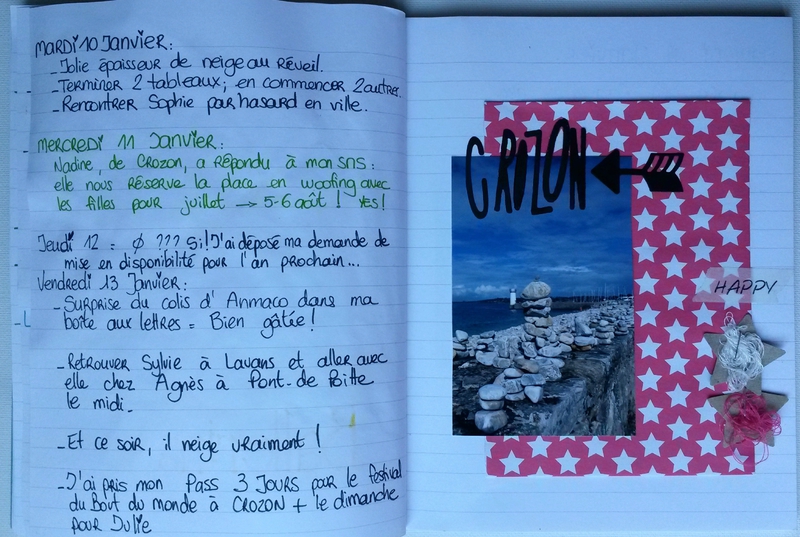 Mardi 10 Janvier:
_ Jolie épaisseur de neige au réveil.
_ Terminer 2 tableaux; en commencer 2 autres.
_ Rencontrer Sophie par hasard en ville.
Mercredi 11 Janvier:
Nadine, de Crozon, a répondu à mon SMS:
elle nous réserve la place en woofing avec
les filles pour juillet → 5-6 août ! Yes!
Jeudi 12 = Ø ??? Si! J'ai déposé ma demande de
mise en disponibilité pour l'an prochain...
Vendredi 13 Janvier:
_ Surprise du colis d'Anmaco dans ma
boîte aux lettres = Bien gâtée!
_ Retrouver Sylvie à Lavans et aller avec
elle chez Agnès à Pont-de Poitte
le midi.
_ Et ce soir, il neige vraiment !
_ J'ai pris mon Pass 3 JOURS pour le festival
du Bout du monde à CROZON + le dimanche
pour Julie
CROZON
HAPPY